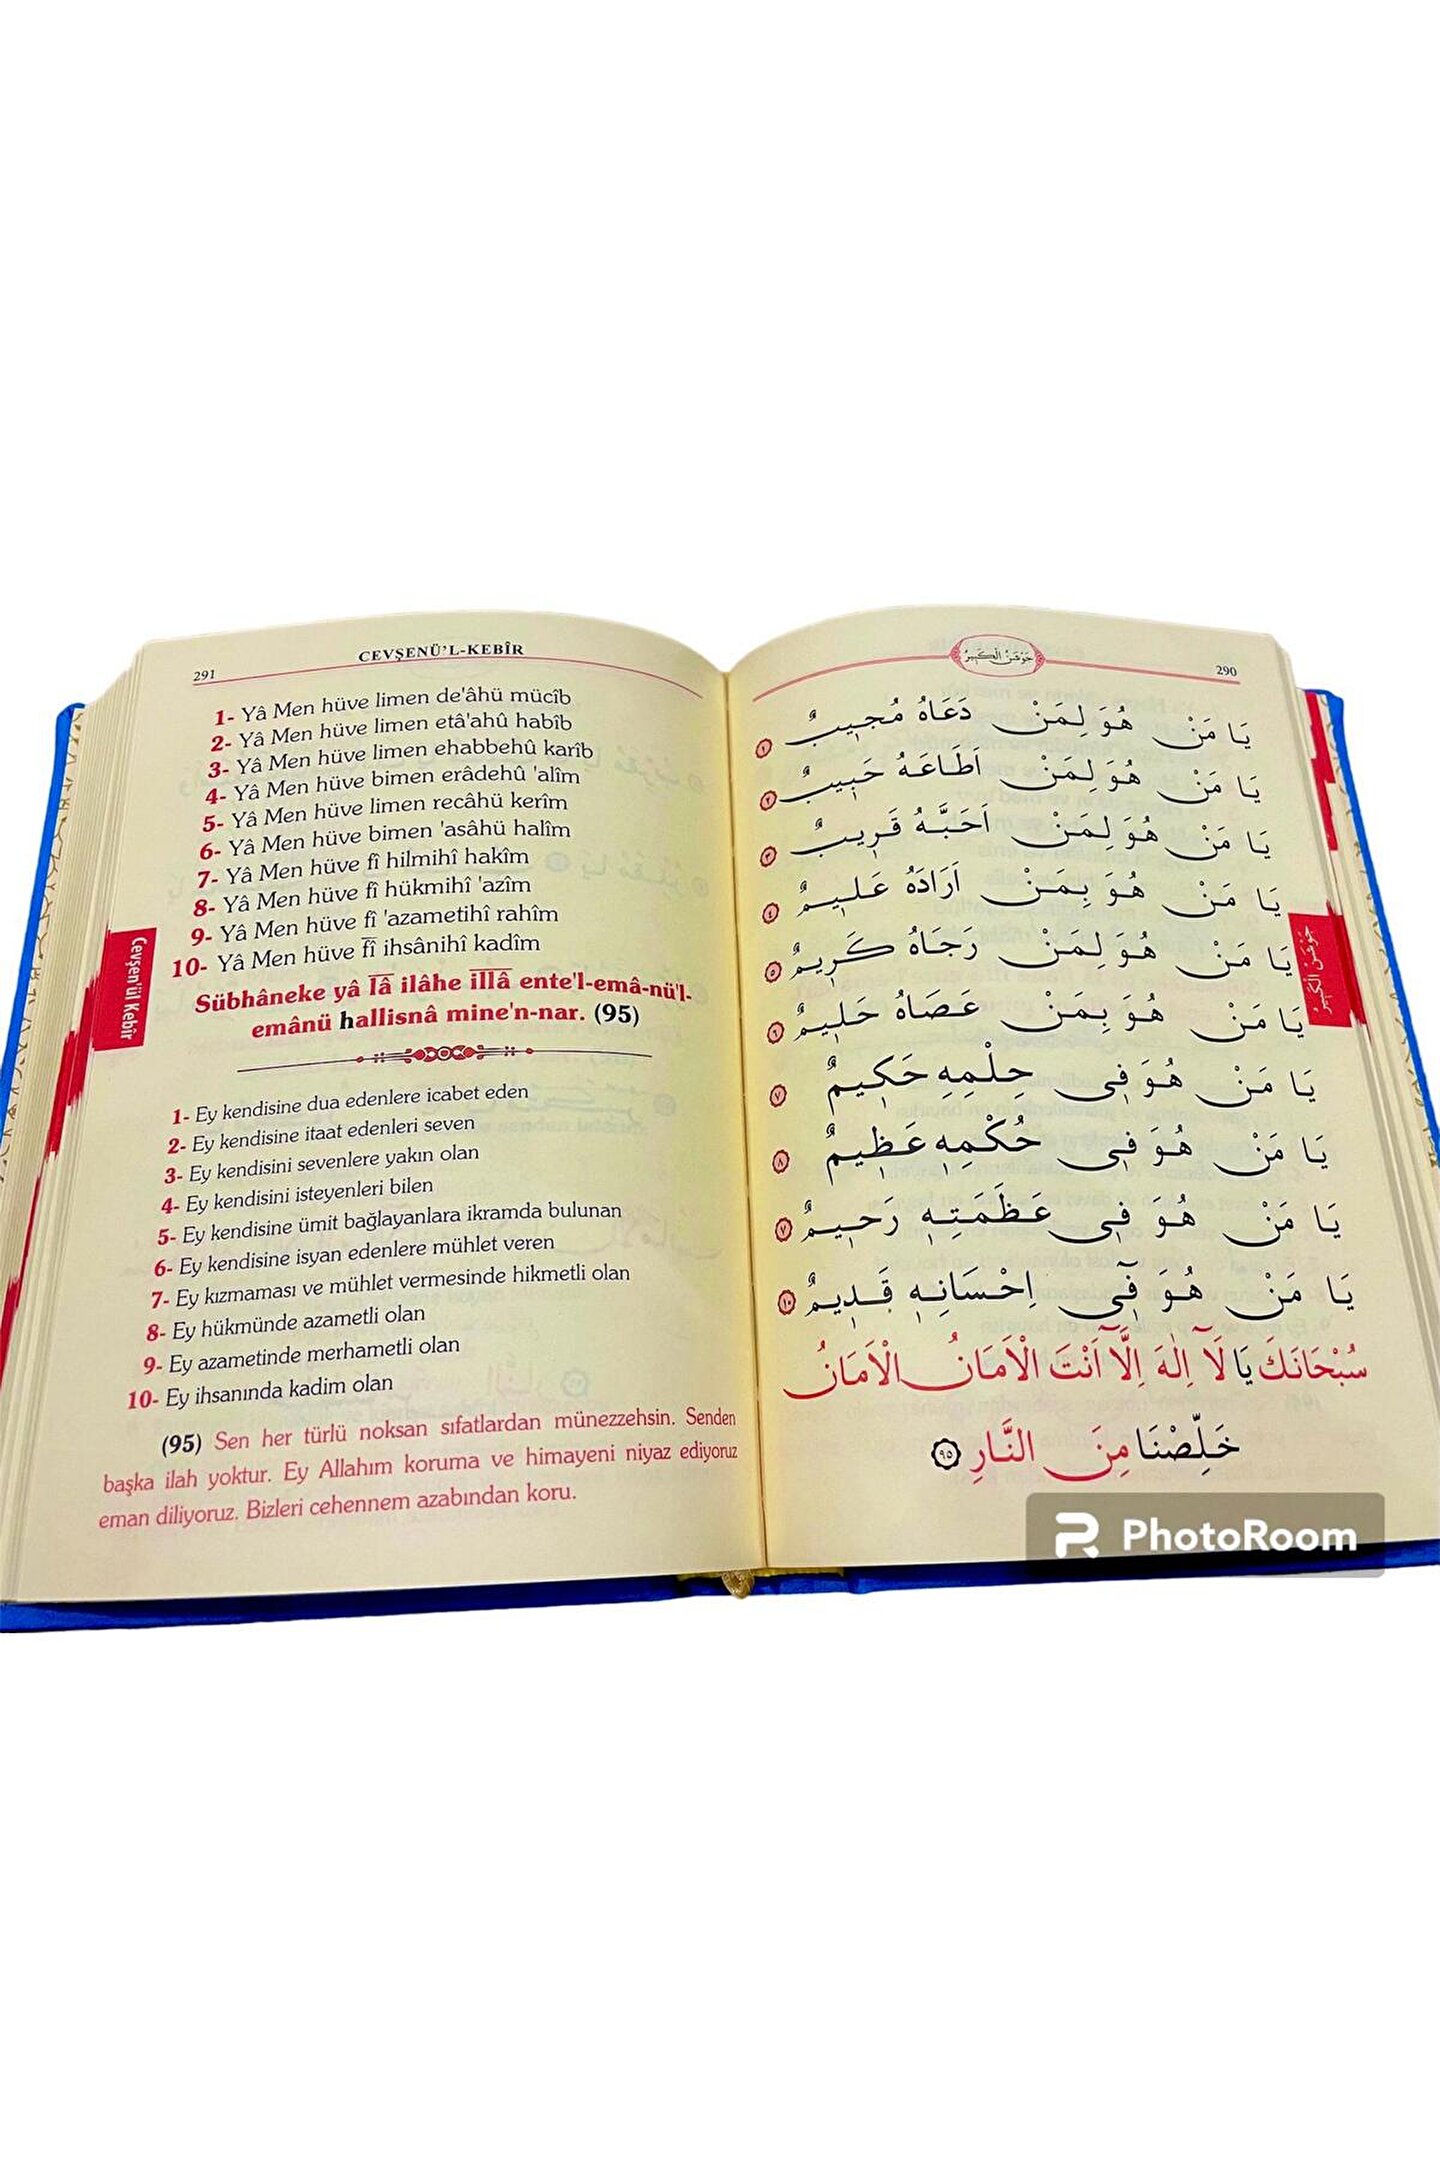 291
CEVŞENÜ'L-KEBÎR
1- Yâ Men hüve limen de'âhü mücîb
2- Yâ Men hüve limen etâ'ahû habîb
3- Yâ Men hüve limen ehabbehû karîb
4- Yâ Men hüve bimen erâdehû 'alîm
5- Yâ Men hüve limen recâhü kerîm
6- Yâ Men hüve bimen 'asâhü halîm
7- Yâ Men hüve fî hilmihî hakîm
8- Yâ Men hüve fî hükmihî 'azîm
9- Yâ Men hüve fî 'azametihî rahîm
10- Yâ Men hüve fî ihsânihî kadîm
Sübhâneke yâ lâ ilâhe illâ ente'l-emâ-nü'l-
emânü hallisnâ mine'n-nar. (95)
1- Ey kendisine dua edenlere icabet eden
2- Ey kendisine itaat edenleri seven
3- Ey kendisini sevenlere yakın olan
4- Ey kendisini isteyenleri bilen
5- Ey kendisine ümit bağlayanlara ikramda bulunan
6- Ey kendisine isyan edenlere mühlet veren
7- Ey kızmaması ve mühlet vermesinde hikmetli olan
8- Ey hükmünde azametli olan
9- Ey azametinde merhametli olan
10- Ey ihsanında kadim olan
(95) Sen her türlü noksan sıfatlardan münezzehsin. Senden
başka ilah yoktur. Ey Allahım koruma ve himayeni niyaz ediyoruz
eman diliyoruz. Bizleri cehennem azabından koru.
Cevşen'ül Kebir
جَوْشَنُ الْكَبِيرُ
290
يَا مَنْ هُوَ لِمَنْ دَعَاهُ مُجِيبٌ ١
يَا مَنْ هُوَ لِمَنْ اَطَاعَهُ حَبِيبٌ ٢
يَا مَنْ هُوَ لِمَنْ اَحَبَّهُ قَرِيبٌ ٣
يَا مَنْ هُوَ بِمَنْ اَرَادَهُ عَلِيمٌ ٤
يَا مَنْ هُوَ لِمَنْ رَجَاهُ كَرِيمٌ ٥
يَا مَنْ هُوَ بِمَنْ عَصَاهُ حَلِيمٌ ٦
يَا مَنْ هُوَ فِي حِلْمِهِ حَكِيمٌ ٧
يَا مَنْ هُوَ فِي حُكْمِهِ عَظِيمٌ ٨
يَا مَنْ هُوَ فِي عَظَمَتِهِ رَحِيمٌ ٧
يَا مَنْ هُوَ فِٓي اِحْسَانِهِ قَدِيمٌ ١٠
سُبْحَانَكَ يَا لَٓا اِلٰهَ اِلَّٓا اَنْتَ الْاَمَانُ الْاَمَانُ
خَلِّصْنَا مِنَ النَّارِ ٩٥
جَوْشَنُ الْكَبِيرُ
PhotoRoom